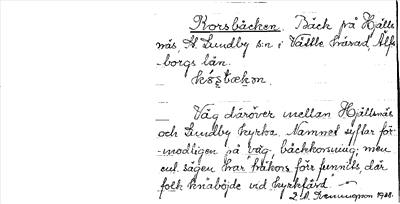 Korsbäcken. Bäck på Hjälls-
näs, St. Lundby s:n i Vättle härad, Älfs-
borgs län.
Väg däröver mellan Hjällsnäs
och Lundby kyrka. Namnet syftar för-
modligen på väg, bäckkorsning; men
enl. sägen har krökors förr funnits, där
folk knäböjde vid kyrkfärd.